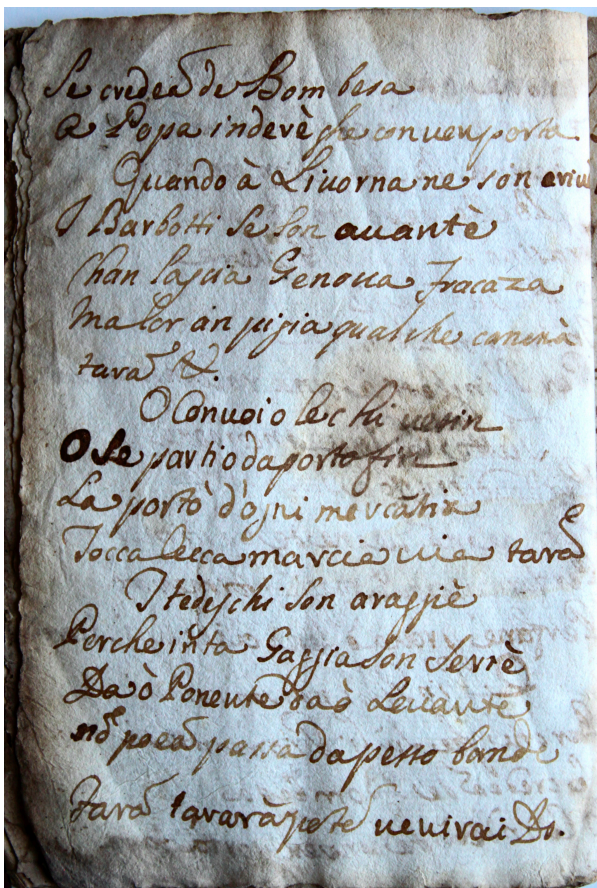 Se credea de Bombesa
A Popa inderè che con ven porta
Quando à Livorna ne son arivè
I Barbotti se son avantè
Chan lascia Genova fracaza
Ma lor an pigia qualche canonà
tara &.
O Convoio le chi vesin
O se partio da porto fin
La portò d'ogni mercatin
Tocca lecca marcia via tara
I tedeschi son araggiè
Perche inta Gaggia son serrè
Da ò Ponente da ò Levante
no poea passa da pesto bande
Tara tarara